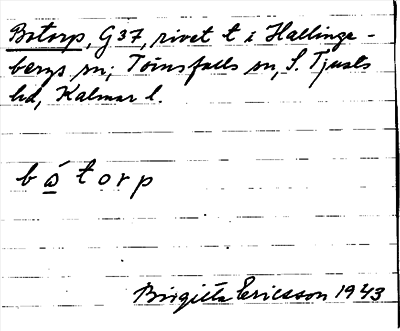 Botorp, G37, rivet t i Hallinge-
bergs sn; Törnsfalls sn, S. Tjusts
hd, Kalmar l.
b á t o r p
Birgitta Ericsson 1943